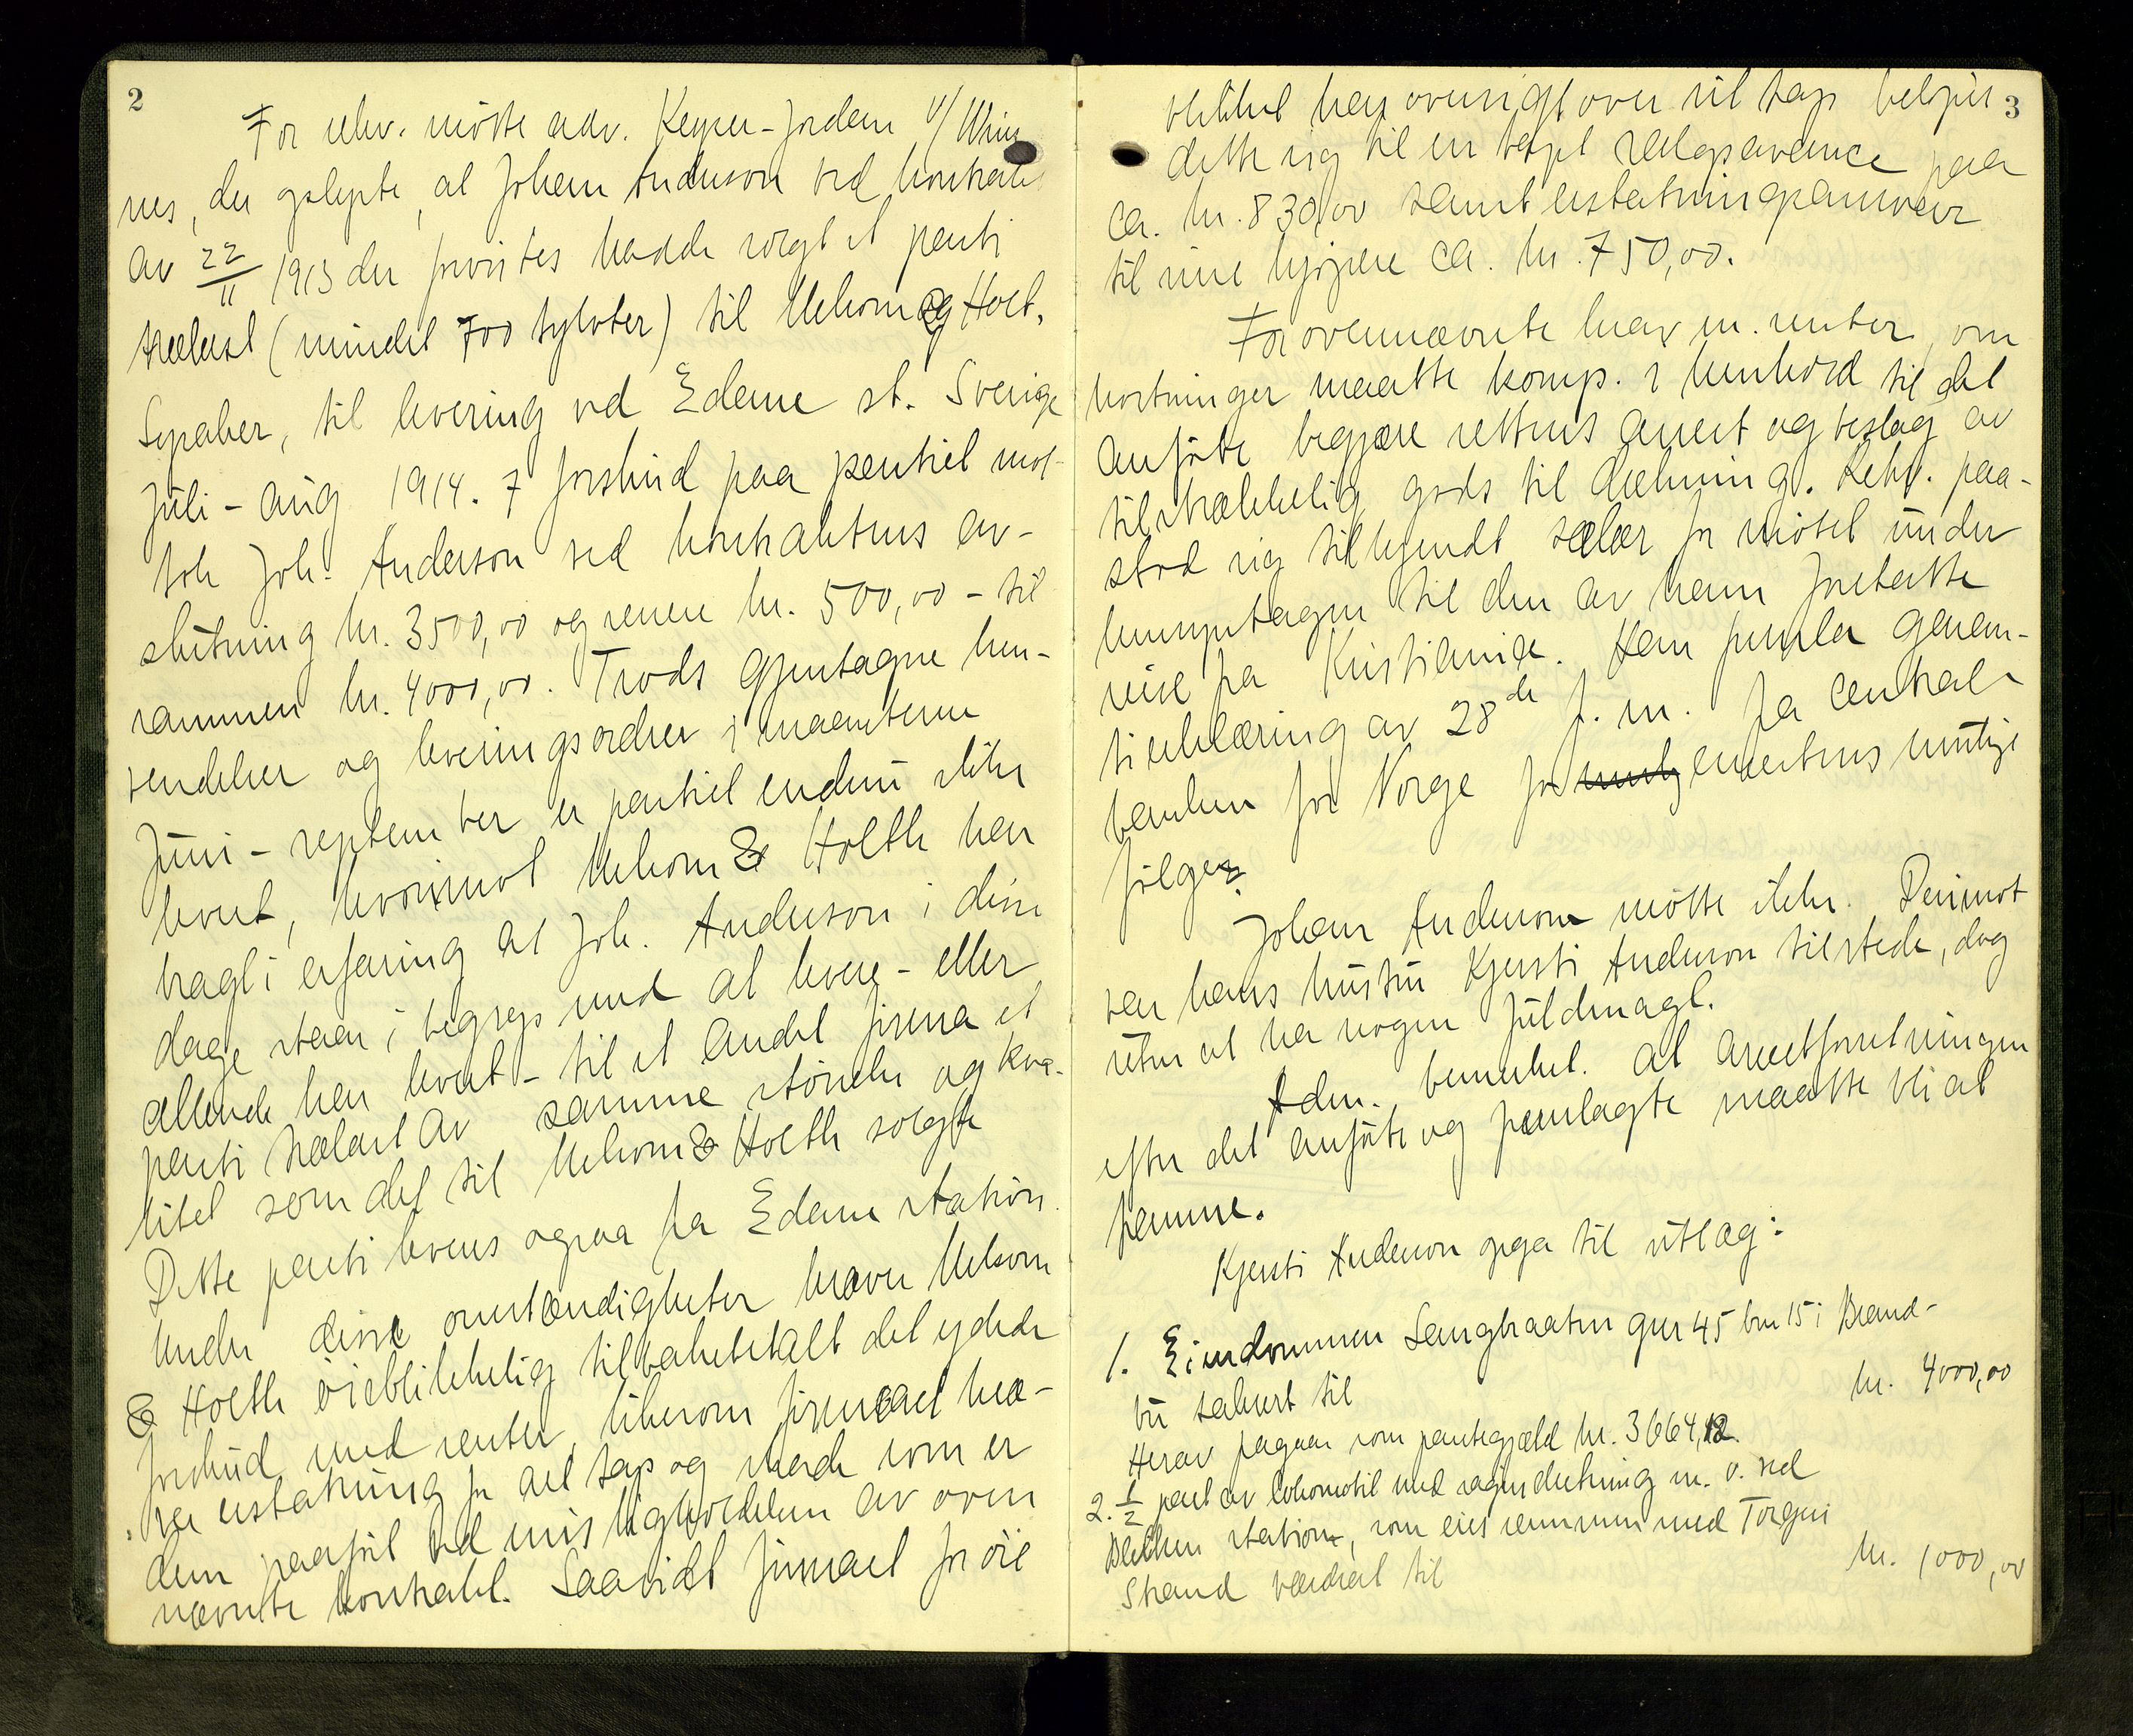 2
For rekv. møtte adv. Keyser-Jordan v/ Wiin
nes, der oplyste, at Johan Anderson ved kontrakt
av 22/11 1913 der forevistes hadde solgt et parti
trælast (mindst 700 tylvter) til Mehom og Holt,
Lysaker, til levering ved Edane st. Sverige
Juli - aug. 1914. I forskud paa partiet mot-
tok Joh. Anderson ved kontraktens av-
slutning kr. 3500,00 og senere kr. 500,00 - til
sammen kr. 4000,00. Trods gjentagne hen-
vendelser og leveringsordrer i maanterne
Juni - september er partiet endnu ikke
levert, hvorimot Mehom & Holth har
bragt i erfaring at Joh. Anderson i disse
dage staar i begrep med at levere - eller
allerede har levert - til et andet firma et
parti trælast av samme størrelse og kva-
litet som det til Mehom & Holth solgte
Dette parti leveres ogsaa fra Edane station.
Under disse omstændigheter kræver Mehom
& Holth øieblikkelig tilbakebetalt det ydede
forskud med renter, likesom firmaet kræ-
ver erstatning for alt tap og skade som er
dem paaført ved misligholdelsen av oven
nævnte kontrakt. Saavidt firmaet for øie
3
blikket har oversigt over sit tap beløper
dette sig til en tapt salgsavance paa
ca. kr. 830,00 samt erstatningsansvar
til sine kjøpere ca. kr. 750,00.
For ovennævnte krav m. renter, om
kostninger maatte komp. i henhold til det
anførte begjære rettens arrest og beslag av
tilstrækkelig gods til dækning. Rekv. paa-
stod sig tilkjendt salær for møtet under
hensyntagen til den av ham foretatte
reise fra Kristiania. Han fremla garan-
tierklæring av 28de f. m. fra Central-
banken for Norge for arrestens mulige
følger.
Johan Anderson møtte ikke. Derimot
var hans hustru Kjersti Anderson tilstede, dog
uten at ha nogen fuldmagt.
Adm. bemerket. at arrestforretningen
efter det anførte og fremlagte maatte bli at
fremme.
Kjersti Anderson opga til utlæg:
1. Eiendommen Langbraaten gnr 45 bnr 15 i Brand-
bu taksert til
kr. 4000,00
Herav fragaar som pantegjæld kr. 3664,12.
2. 1/2 part av lokomobil med sagindretning m. v. ved
Bleiken station, som eies sammen med Torger
Strand værdsat til
kr. 1000,00